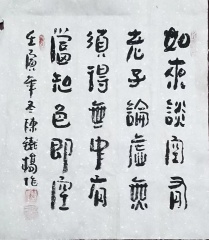 如來談空有
老子論虛無
須得無中有
當知色即空
壬寅年冬陳鐵作